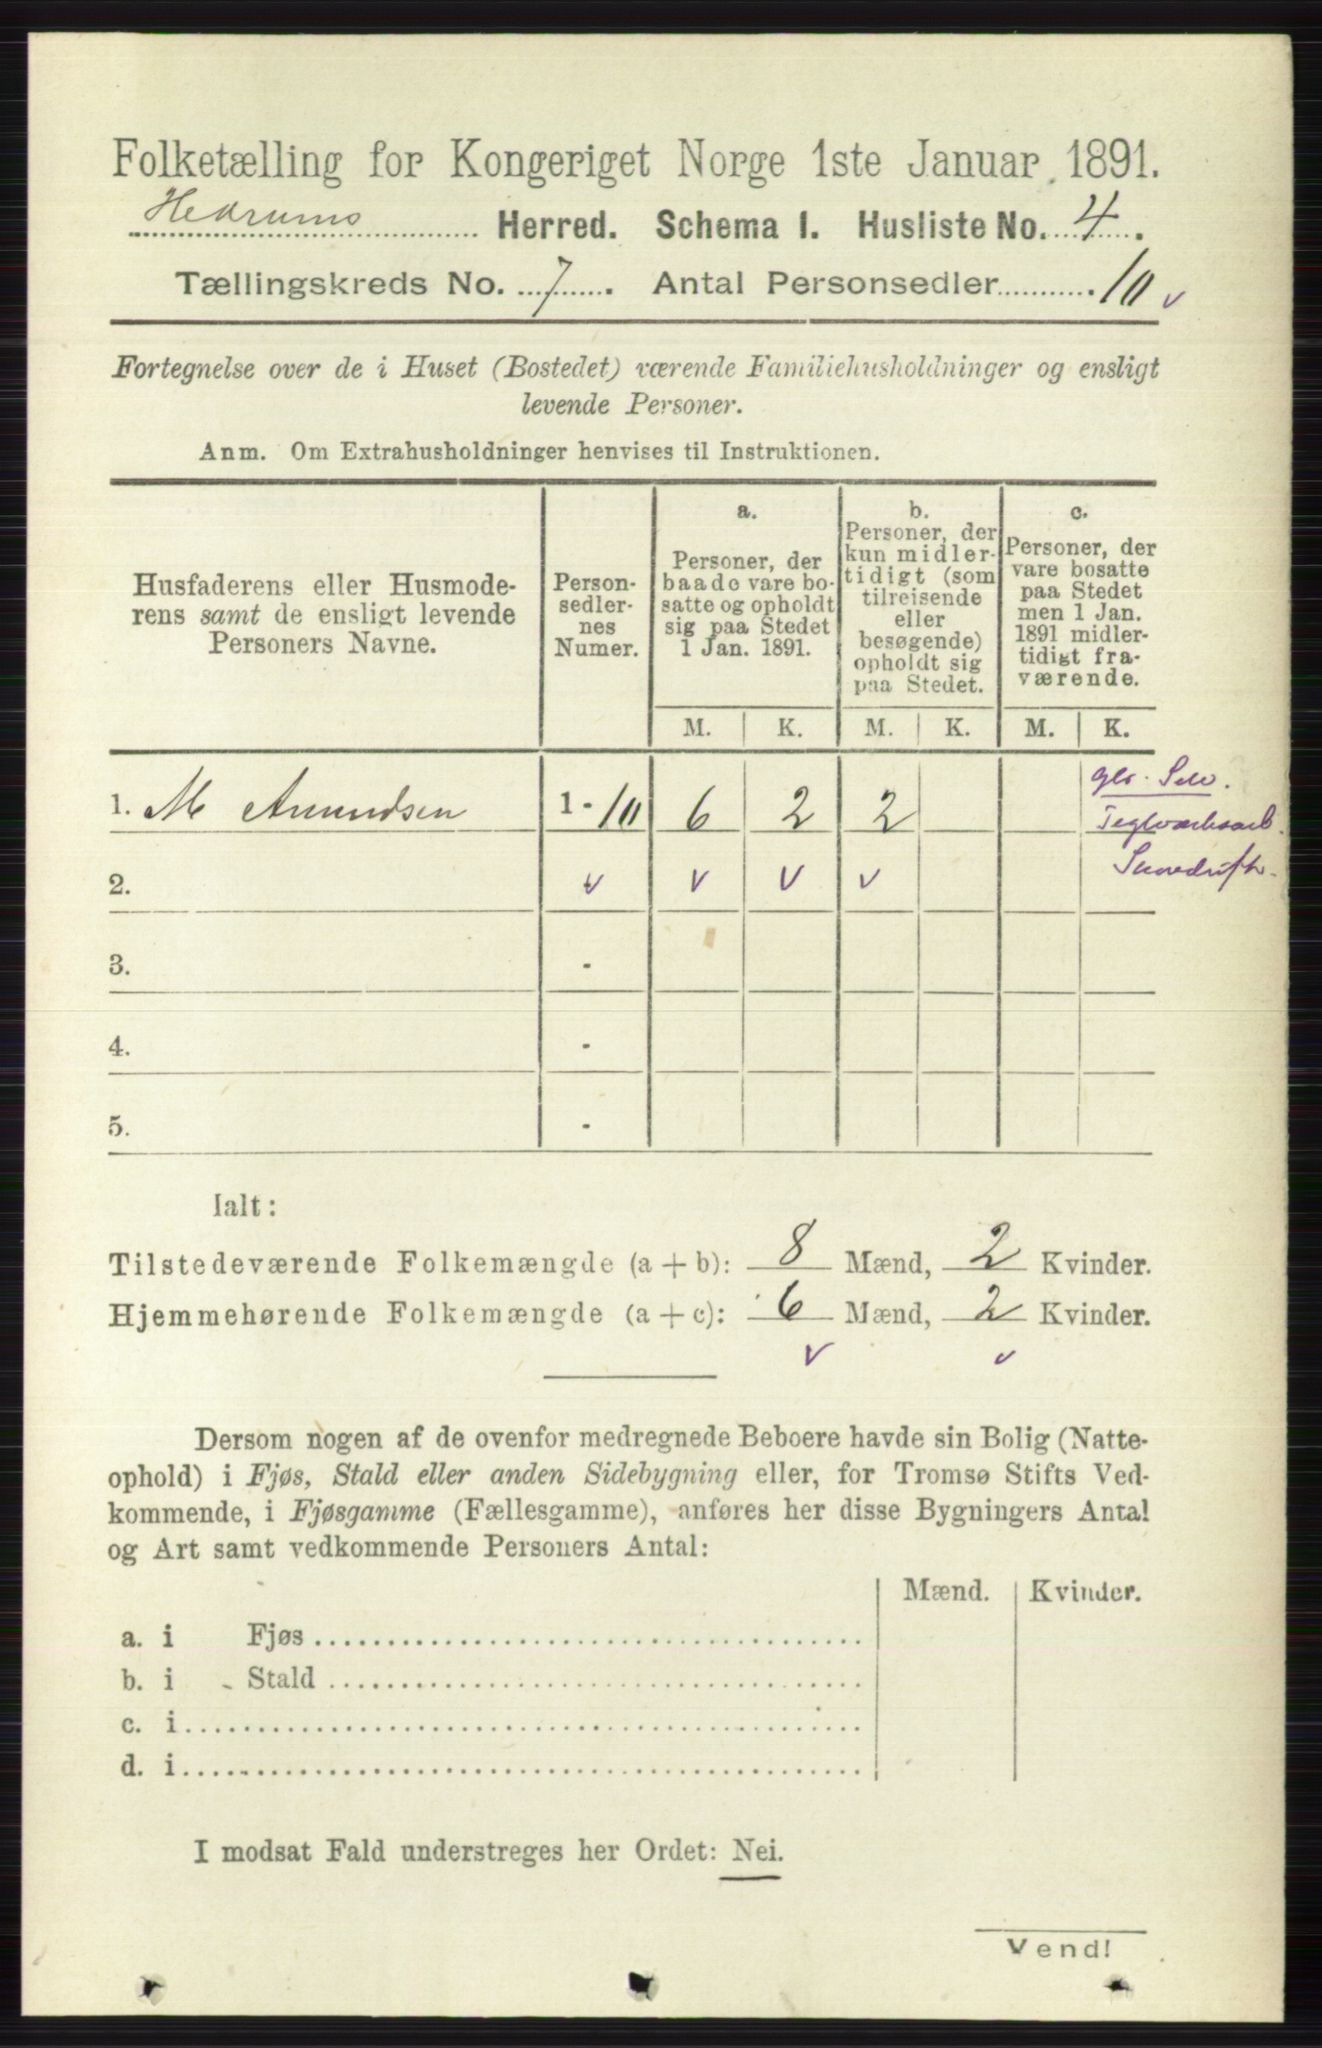 Folketælling for Kongeriget Norge 1ste Januar 1891.
Hedrums Herred. Schema I. Husliste No. 4.
Tællingskreds No. 7. Antal Personsedler 10 v
Fortegnelse over de i Huset (Bostedet) værende Familiehusholdninger og ensligt
levende Personer.
Anm. Om Extrahusholdninger henvises til Instruktionen.
Husfaderens eller Husmode-
rens samt de ensligt levende
Personers Navne.
Person-
sedler-
nes
Numer.
a.
Personer, der
baade vare bo-
satte og opholdt
sig paa Stedet
1 Jan. 1891.
b.
Personer, der
kun midler-
tidigt (som
tilreisende
eller
besøgende)
opholdt sig
paa Stedet.
c.
Personer, der
vare bosatte
paa Stedet
men 1 Jan.
1891 midler-
tidigt fra-
værende.
M. K. M. K. M. K.
1. M Amundsen 1 - 10 6 2 2
Teglværksarb.
2. v v v v
3. -
4. -
5. -
Ialt:
Tilstedeværende Folkemængde (a + b): 8 Mænd, 2 Kvinder.
Hjemmehørende Folkemængde (a + c): 6 Mænd, 2 Kvinder.
v v
Dersom nogen af de ovenfor medregnede Beboere havde sin Bolig (Natte-
ophold) i Fjøs, Stald eller anden Sidebygning eller, for Tromsø Stifts Ved-
kommende, i Fjøsgamme (Fællesgamme), anføres her disse Bygningers Antal
og Art samt vedkommende Personers Antal:
Mænd. Kvinder.
a. i Fjøs
b. i - Stald
c. i
d. i
I modsat Fald understreges her Ordet: Nei.
Vend!